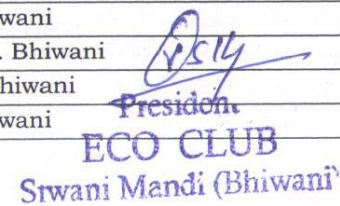 wani
. Bhiwani
hiwani
wani
President
ECO CLUB
Siwani Mandi (Bhiwani)